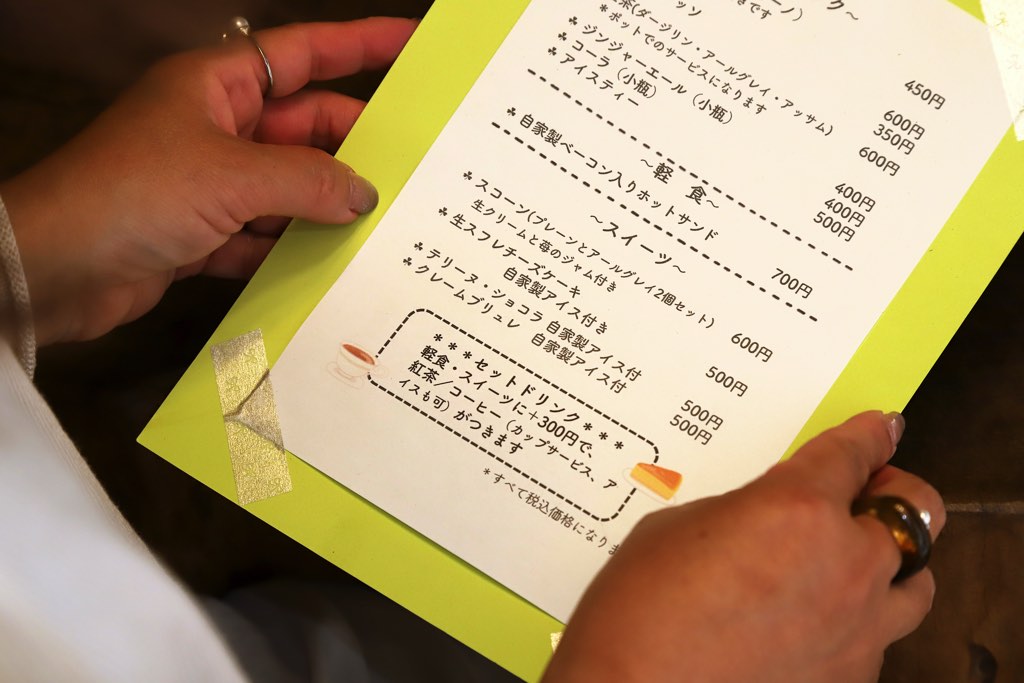 ク～
ーノ）
きです
ッソ 450円
紅茶(ダージリン・アールグレイ・アッサム) 600円
＊ポットでのサービスになります 350円
600円
☘ジンジャーエール（小瓶） 400円
☘コーラ（小瓶） 400円
☘アイスティー 500円
～軽 食～
☘自家製ベーコン入りホットサンド 700円
～スイーツ～
☘スコーン(プレーンとアールグレイ2個セット) 600円
生クリームと苺のジャム付き
☘生スフレチーズケーキ 500円
自家製アイス付き
☘テリーヌ・ショコラ 自家製アイス付 500円
☘クレームブリュレ 自家製アイス付 500円
＊＊＊セットドリンク＊＊＊
軽食・スイーツに＋300円で、
紅茶／コーヒー（カップサービス、ア
イスも可）がつきます
＊すべて税込価格になりま